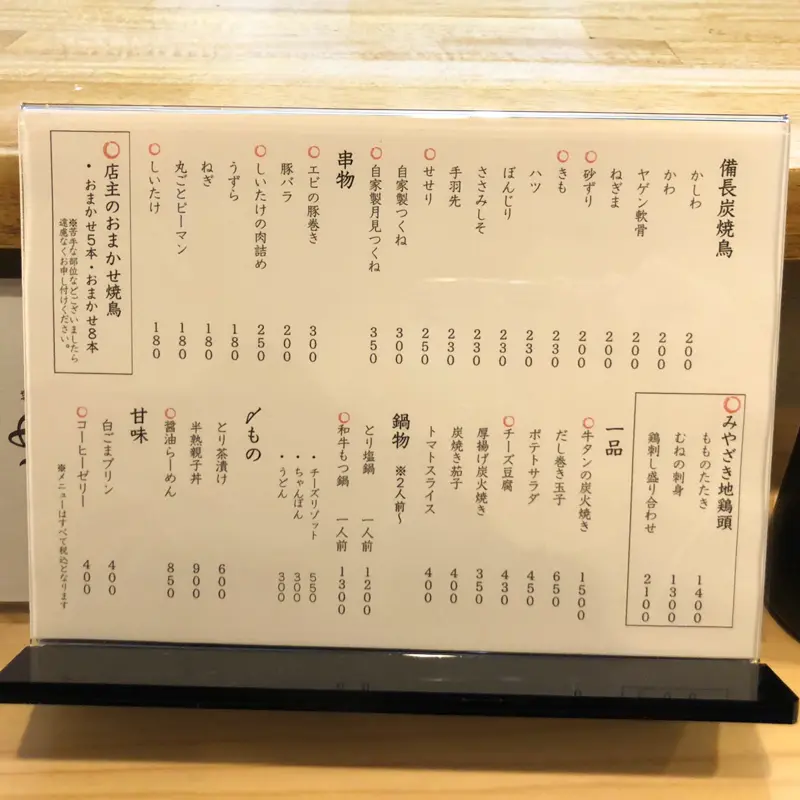 備長炭焼鳥
かしわ 200
かわ 200
ヤゲン軟骨 200
ねぎま 200
砂ずり 200
きも 230
ハツ 230
ぼんじり 230
ささみしそ 230
手羽先 230
せせり 250
自家製つくね 300
自家製月見つくね 350
串物
エビの豚巻き 300
豚バラ 200
しいたけの肉詰め 250
うずら 180
ねぎ 180
丸ごとピーマン 180
しいたけ 180
店主のおまかせ焼鳥
・おまかせ5本・おまかせ8本
※苦手な部位などございましたら
遠慮なくお申し付けください。
みやざき地鶏頭
もものたたき 1400
むねの刺身 1300
鶏刺し盛り合わせ 2100
一品
牛タンの炭火焼き 1500
だし巻き玉子 650
ポテトサラダ 450
チーズ豆腐 430
厚揚げ炭火焼き 350
炭焼き茄子 400
トマトスライス 400
鍋物 ※2人前~
とり塩鍋 一人前 1200
和牛もつ鍋 一人前 1300
・チーズリゾット 550
・ちゃんぽん 300
・うどん 300
〆もの
とり茶漬け 600
半熟親子丼 900
醤油らーめん 850
甘味
白ごまプリン 400
コーヒーゼリー 400
※メニューはすべて税込となります